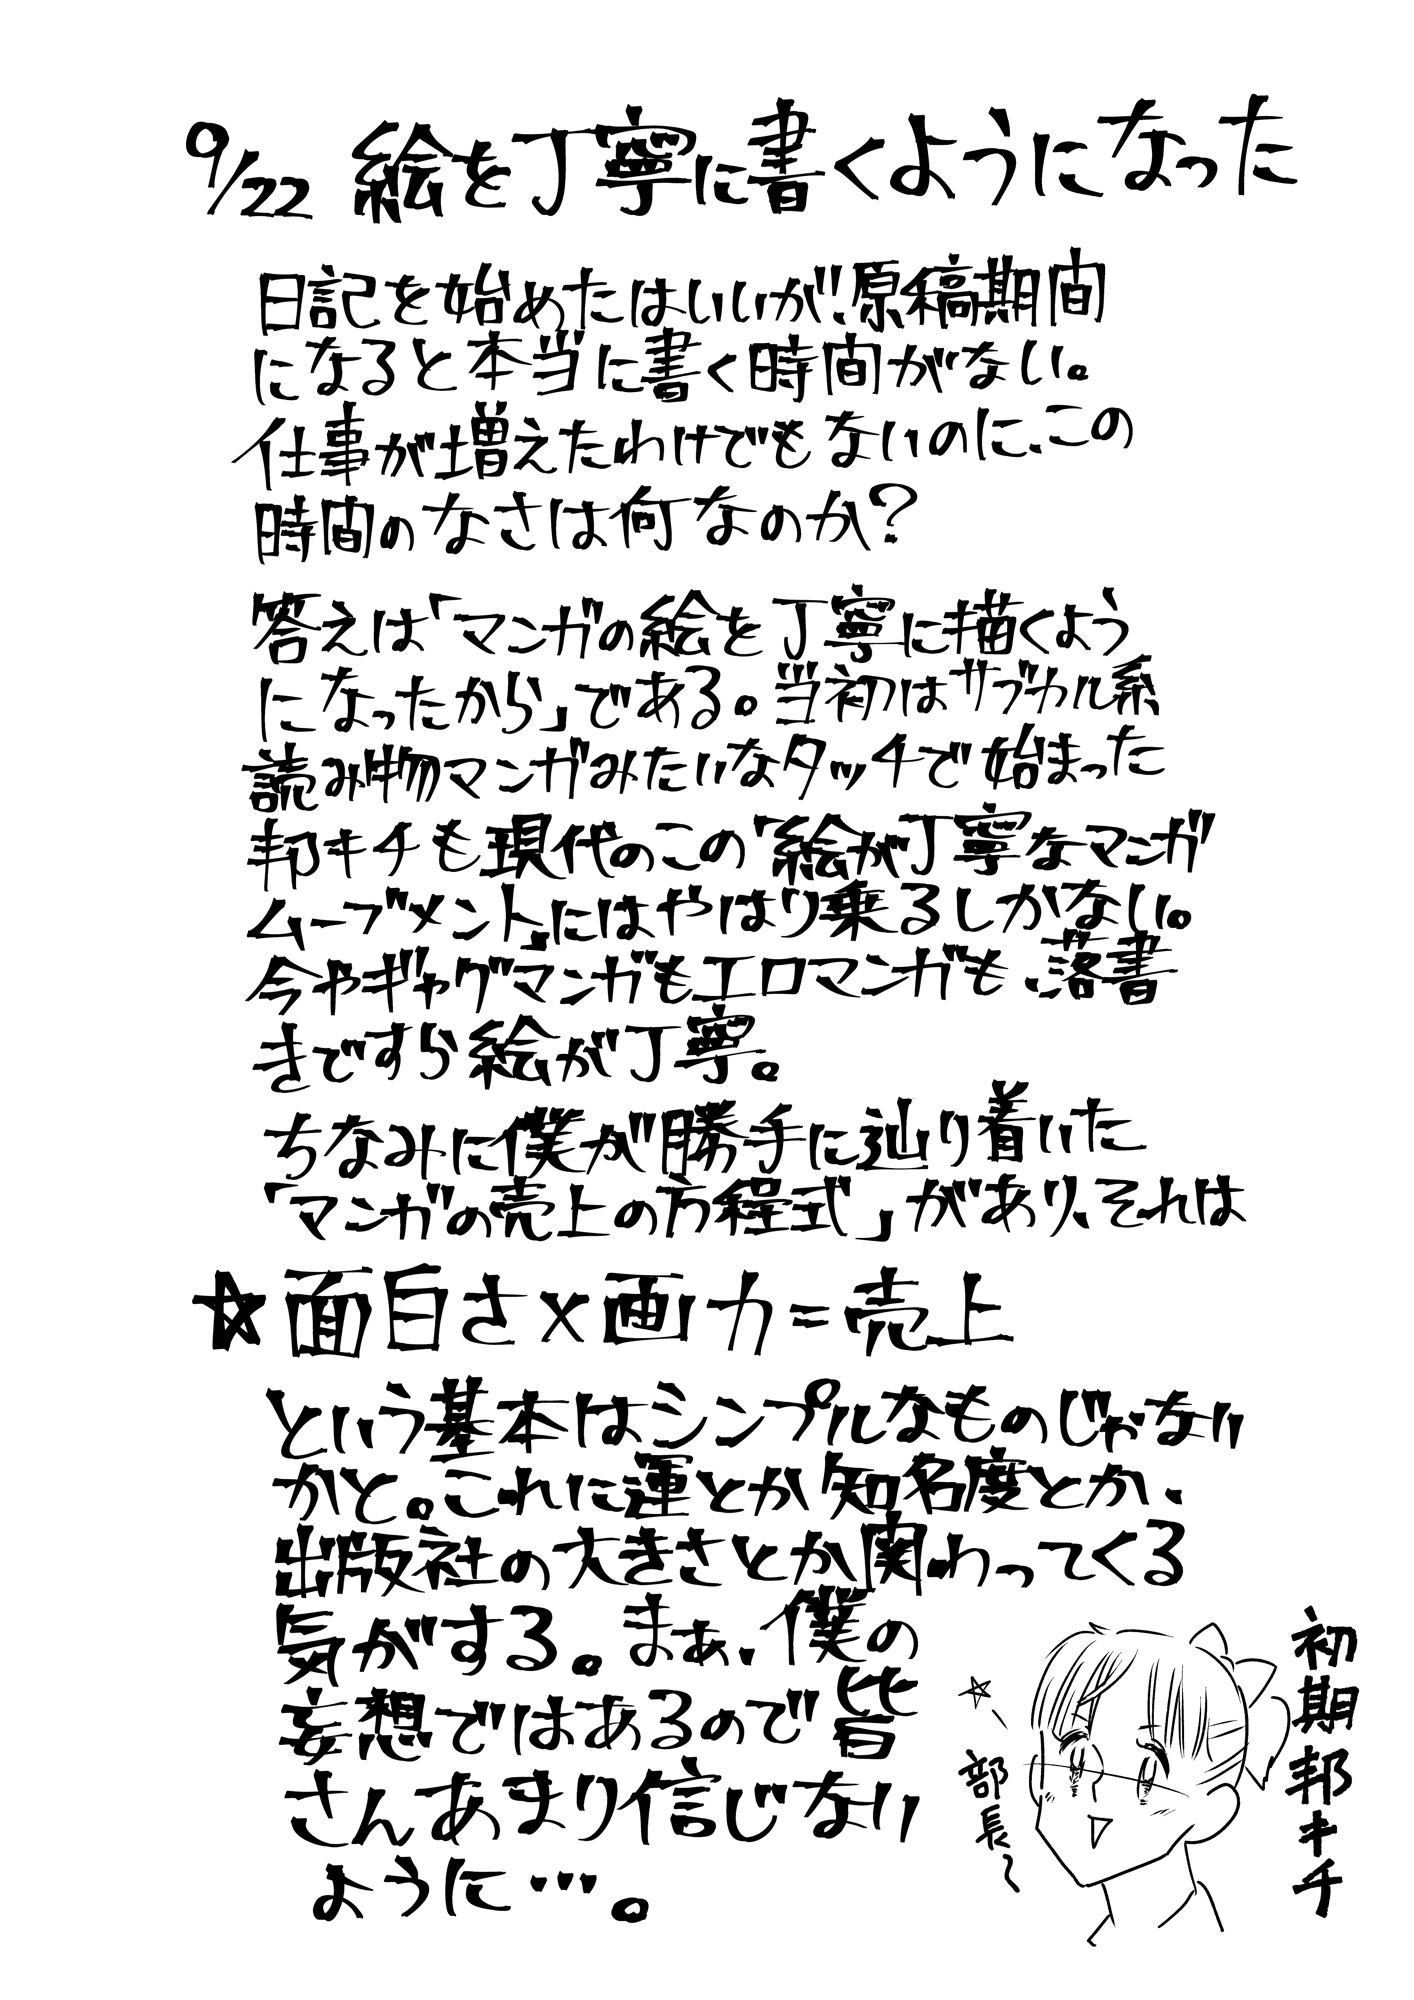 9/22 絵を丁寧に書くようになった
日記を始めたはいいが、原稿期間
になると本当に書く時間がない。
仕事が増えたわけでもないのに、この
時間のなさは何なのか?
答えは「マンガの絵を丁寧に描くよう
になったから」である。当初はサブカル系
読み物マンガみたいなタッチで始まった
邦キチも現代のこの「絵が丁寧なマンガ
ムーブメント」にはやはり乗るしかない。
今やギャグマンガもエロマンガも、落書
きですら絵が丁寧。
ちなみに僕が勝手に辿り着いた
「マンガの売上の方程式」があり、それは
☆面白さ×画力=売上
という基本はシンプルなものじゃない
かと。これに運とか知名度とか、
出版社の大きさとか関わってくる
気がする。まぁ、僕の
妄想ではあるので皆
さんあまり信じない
ように…。
初期邦キチ
☆
部長~